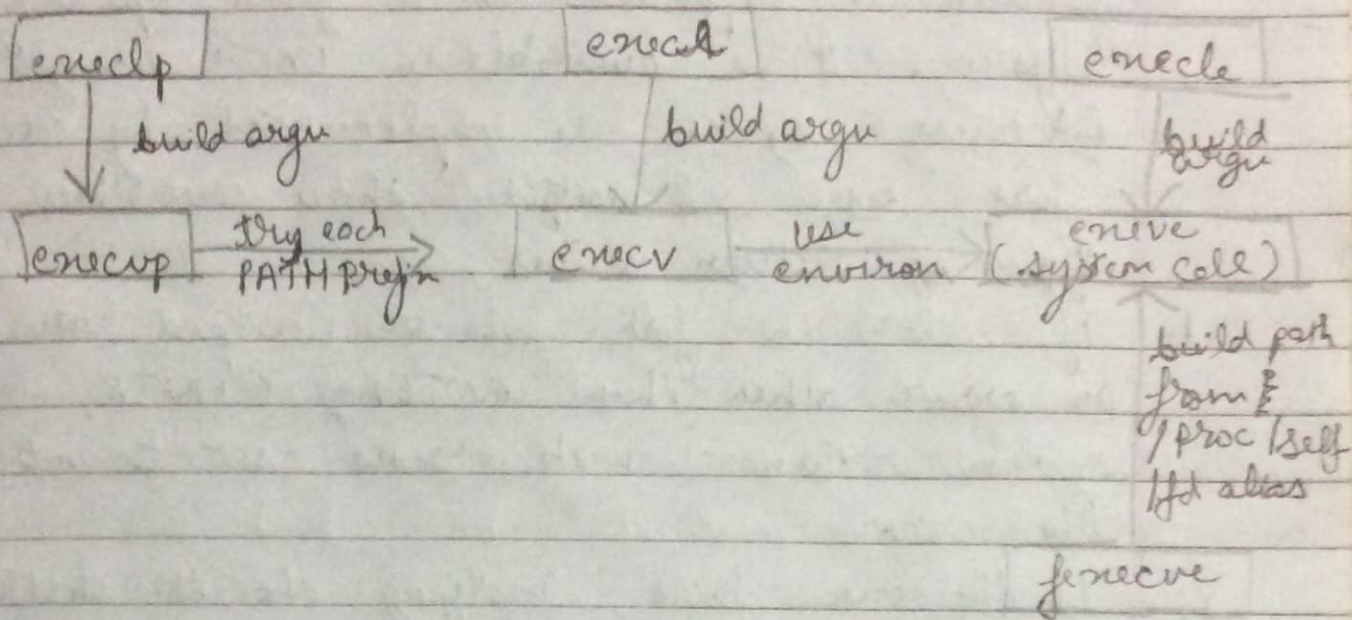 execlp
execl
execle
build argv
build argv
build
argv
execvp
try each
PATH prefix
execv
use
environ
exeve
(system call)
build path
from
/proc/self
/fd alias
fexecve